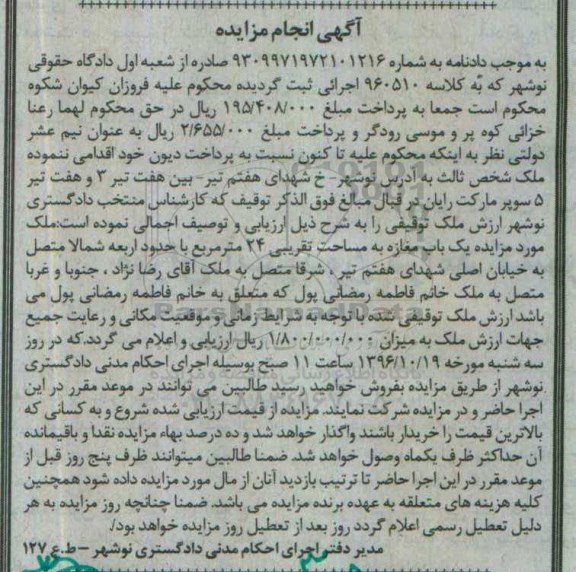 آگهی انجام مزایده
به موجب دادنامه به شماره ۹۳۰۹۹۷۱۹۷۲۱۰۱۲۱۶ صادره از شعبه اول دادگاه حقوقی
نوشهر که به کلاسه ۹۶۰۵۱۰ اجرائی ثبت گردیده محکوم علیه فروزان کیوان شکوه
محکوم است جمعا به پرداخت مبلغ ۱۹۵/۴۰۸/۰۰۰ ریال در حق محکوم لهما رعنا
خزائی کوه پر و موسی رودگر و پرداخت مبلغ ۲/۶۵۵/۰۰۰ ریال به عنوان نیم عشر
دولتی نظر به اینکه محکوم علیه تا کنون نسبت به پرداخت دیون خود اقدامی ننموده
ملک شخص ثالث به آدرس نوشهر- خ شهدای هفتم تیر- بین هفت تیر ۳ و هفت تیر
۵ سوپر مارکت رایان در قبال مبالغ فوق الذکر توقیف که کارشناس منتخب دادگستری
نوشهر ارزش ملک توقیفی را به شرح ذیل ارزیابی و توصیف اجمالی نموده است:ملک
مورد مزایده یک باب مغازه به مساحت تقریبی ۲۴ مترمربع با حدود اربعه شمالا متصل
به خیابان اصلی شهدای هفتم تیر ، شرقا متصل به ملک آقای رضا نژاد ، جنوبا و غربا
متصل به ملک خانم فاطمه رمضانی پول که متعلق به خانم فاطمه رمضانی پول می
باشد ارزش ملک توقیفی شده با توجه به شرایط زمانی و موقعیت مکانی و رعایت جمیع
جهات ارزش ملک به میزان ۱/۸۰۰/۰۰۰/۰۰۰ ریال ارزیابی و اعلام می گردد.که در روز
سه شنبه مورخه ۱۳۹۶/۱۰/۱۹ ساعت ۱۱ صبح بوسیله اجرای احکام مدنی دادگستری
نوشهر از طریق مزایده بفروش خواهید رسید طالبین می توانند در موعد مقرر در این
اجرا حاضر و در مزایده شرکت نمایند. مزایده از قیمت ارزیابی شده شروع و به کسانی که
بالاترین قیمت را خریدار باشند واگذار خواهد شد و ده درصد بهاء مزایده نقدا و باقیمانده
آن حداکثر ظرف یکماه وصول خواهد شد. ضمنا طالبین میتوانند ظرف پنج روز قبل از
موعد مقرر در این اجرا حاضر تا ترتیب بازدید آنان از مال مورد مزایده داده شود همچنین
کلیه هزینه های متعلقه به عهده برنده مزایده می باشد. ضمنا چنانچه روز مزایده به هر
دلیل تعطیل رسمی اعلام گردد روز بعد از تعطیل روز مزایده خواهد بود/.
مدیر دفتر اجرای احکام مدنی دادگستری نوشهر –ط.ع ۱۲۷